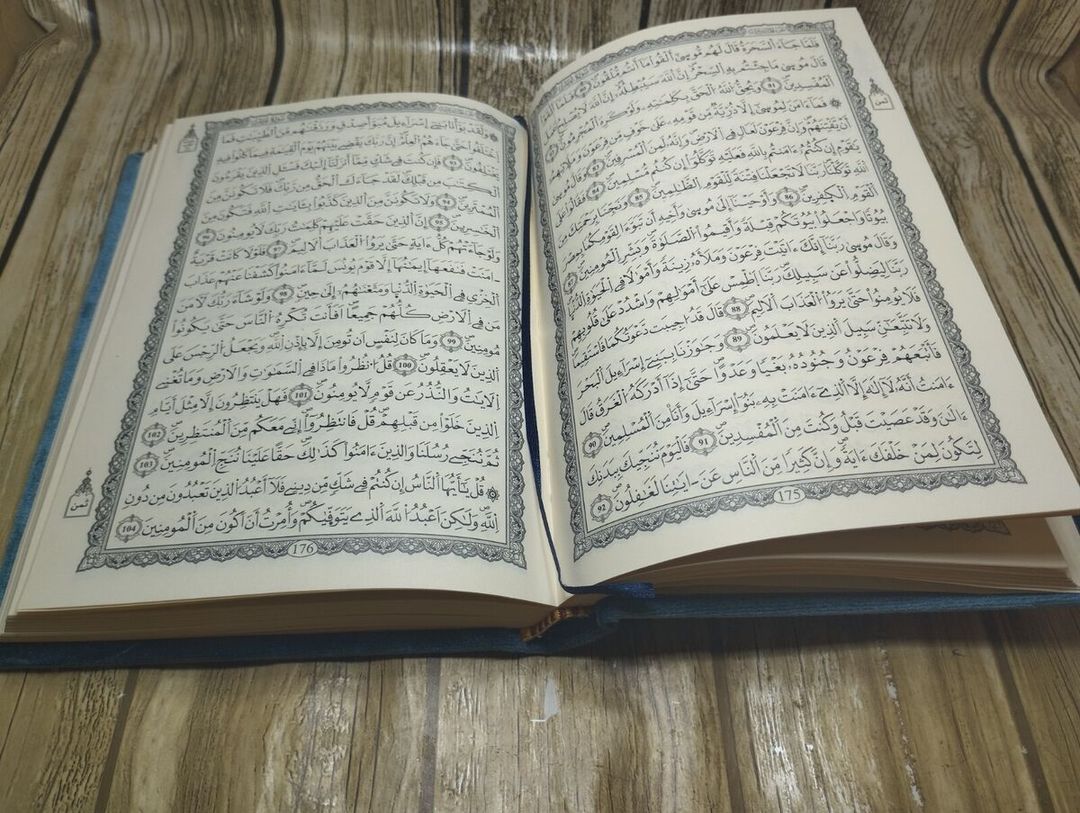 فَلَمَّا جَآءَ اَلسَّحَرَةُ قَالَ لَهُم مُّوسَىٰٓ أَلْقُوا مَآ أَنتُم مُّلْقُونَ 80 فَلَمَّآ
قَالَ مُوسَىٰ مَا جِئْتُم بِهِ اِلسِّحْرُ إِنَّ اَللَّهَ سَيُبْطِلُهُۥٓ إِنَّ اَللَّهَ لَا يُصْلِحُ
اَلْمُفْسِدِينَ 81 وَيُحِقُّ اُللَّهُ اُلْحَقَّ بِكَلِمَٰتِهِۦ وَلَوْ كَرِهَ اَلْمُجْرِمُونَ 82
فَمَآ ءَامَنَ لِمُوسَىٰٓ إِلَّا ذُرِّيَّةٌ مِّن قَوْمِهِۦ عَلَىٰ خَوْفٍ مِّن فِرْعَوْنَ وَمَلَإِيْهِمُۥٓ
أَنْ يَّفْتِنَهُمْ وَإِنَّ فِرْعَوْنَ لَعَالٍ فِي اِلَارْضِ وَإِنَّهُۥ لَمِنَ اَلْمُسْرِفِينَ 83 وَقَالَ مُوسَىٰ
يَٰقَوْمِ إِن كُنتُمُۥٓ ءَامَنتُم بِاللَّهِ فَعَلَيْهِ تَوَكَّلُوٓا إِن كُنتُم مُّسْلِمِينَ 84 فَقَالُوا عَلَى
اَللَّهِ تَوَكَّلْنَا رَبَّنَا لَا تَجْعَلْنَا فِتْنَةً لِّلْقَوْمِ اِلظَّٰلِمِينَ 85 وَنَجِّنَا بِرَحْمَتِكَ مِنَ
اَلْقَوْمِ اِلْكَٰفِرِينَ 86 وَأَوْحَيْنَآ إِلَىٰ مُوسَىٰ وَأَخِيهِ أَن تَبَوَّءَا لِقَوْمِكُمَا بِمِصْرَ
بُيُوتًا وَاجْعَلُوا بُيُوتَكُمْ قِبْلَةً وَأَقِيمُوا اُلصَّلَوٰةَ وَبَشِّرِ اِلْمُومِنِينَ 87
وَقَالَ مُوسَىٰ رَبَّنَآ إِنَّكَ ءَاتَيْتَ فِرْعَوْنَ وَمَلَأَهُۥ زِينَةً وَأَمْوَٰلًا فِي اِلْحَيَوٰةِ اِلدُّنْيَا
رَبَّنَا لِيَضِلُّوا عَن سَبِيلِكَ رَبَّنَا اَطْمِسْ عَلَىٰٓ أَمْوَٰلِهِمْ وَاشْدُدْ عَلَىٰ قُلُوبِهِمْ
فَلَا يُومِنُوا حَتَّىٰ يَرَوُا اُلْعَذَابَ اَلَالِيمَ 88 قَالَ قَدُ اجِيبَت دَّعْوَتُكُمَا فَاسْتَقِيمَا
وَلَا تَتَّبِعَٰٓنِّ سَبِيلَ اَلذِينَ لَا يَعْلَمُونَ 89 وَجَٰوَزْنَا بِبَنِيٓ إِسْرَآءِيلَ اَلْبَحْرَ
فَأَتْبَعَهُمْ فِرْعَوْنُ وَجُنُودُهُۥ بَغْيًا وَعَدْوًا حَتَّىٰٓ إِذَآ أَدْرَكَهُ اُلْغَرَقُ قَالَ
ءَامَنتُ أَنَّهُۥ لَآ إِلَٰهَ إِلَّا اَلذِيٓ ءَامَنَتْ بِهِۦ بَنُوٓا إِسْرَآءِيلَ وَأَنَا مِنَ اَلْمُسْلِمِينَ 90
ءَآلَٰنَ وَقَدْ عَصَيْتَ قَبْلُ وَكُنتَ مِنَ اَلْمُفْسِدِينَ 91 فَالْيَوْمَ نُنَجِّيكَ بِبَدَنِكَ
لِتَكُونَ لِمَنْ خَلْفَكَ ءَايَةً وَإِنَّ كَثِيرًا مِّنَ اَلنَّاسِ عَنَ ـايَٰتِنَا لَغَٰفِلُونَ 92
175
ثمن
وَلَقَدْ بَوَّأْنَا بَنِيٓ إِسْرَآءِيلَ مُبَوَّأَ صِدْقٍ وَرَزَقْنَٰهُم مِّنَ اَلطَّيِّبَٰتِ فَمَا
اَخْتَلَفُوا حَتَّىٰ جَآءَهُمُ اُلْعِلْمُ إِنَّ رَبَّكَ يَقْضِي بَيْنَهُمْ يَوْمَ اَلْقِيَٰمَةِ فِيمَا كَانُوا فِيهِ
يَخْتَلِفُونَ 93 فَإِن كُنتَ فِي شَكٍّ مِّمَّآ أَنزَلْنَآ إِلَيْكَ فَسْـَٔلِ اِلذِينَ يَقْرَءُونَ
اَلْكِتَٰبَ مِن قَبْلِكَ لَقَدْ جَآءَكَ اَلْحَقُّ مِن رَّبِّكَ فَلَا تَكُونَنَّ مِنَ
اَلْمُمْتَرِينَ 94 وَلَا تَكُونَنَّ مِنَ اَلذِينَ كَذَّبُوا بِـَٔايَٰتِ اِللَّهِ فَتَكُونَ مِنَ
اَلْخَٰسِرِينَ 95 إِنَّ اَلذِينَ حَقَّتْ عَلَيْهِمْ كَلِمَٰتُ رَبِّكَ لَا يُومِنُونَ 96
وَلَوْ جَآءَتْهُمْ كُلُّ ءَايَةٍ حَتَّىٰ يَرَوُا اُلْعَذَابَ اَلَالِيمَ 97 فَلَوْلَا كَانَتْ قَرْيَةٌ
ـامَنَتْ فَنَفَعَهَآ إِيمَٰنُهَآ إِلَّا قَوْمَ يُونُسَ لَمَّآ ءَامَنُوا كَشَفْنَا عَنْهُمْ عَذَابَ
اَلْخِزْيِ فِي اِلْحَيَوٰةِ اِلدُّنْيَا وَمَتَّعْنَٰهُمُۥٓ إِلَىٰ حِينٍ 98 وَلَوْ شَآءَ رَبُّكَ لَأٓمَنَ
مَن فِي اِلَارْضِ كُلُّهُمْ جَمِيعًا اَفَأَنتَ تُكْرِهُ اُلنَّاسَ حَتَّىٰ يَكُونُوا
مُومِنِينَ 99 وَمَا كَانَ لِنَفْسٍ اَن تُومِنَ إِلَّا بِإِذْنِ اِللَّهِ وَيَجْعَلُ اُلرِّجْسَ عَلَى
اَلذِينَ لَا يَعْقِلُونَ 100 قُلُ انظُرُوا مَاذَا فِي اِلسَّمَٰوَٰتِ وَالَارْضِ وَمَا تُغْنِي
اِلَايَٰتُ وَالنُّذُرُ عَن قَوْمٍ لَّا يُومِنُونَ 101 فَهَلْ يَنتَظِرُونَ إِلَّا مِثْلَ أَيَّامِ
اِلذِينَ خَلَوْا مِن قَبْلِهِمْ قُلْ فَانتَظِرُوٓا إِنِّي مَعَكُم مِّنَ اَلْمُنتَظِرِينَ 102
ثُمَّ نُنَجِّي رُسُلَنَا وَالذِينَ ءَامَنُوا كَذَٰلِكَ حَقًّا عَلَيْنَا نُنَجِّ اِلْمُومِنِينَ 103
قُلْ يَٰٓأَيُّهَا اَلنَّاسُ إِن كُنتُمْ فِي شَكٍّ مِّن دِينِي فَلَآ أَعْبُدُ اُلذِينَ تَعْبُدُونَ مِن دُونِ
اِللَّهِ وَلَٰكِنَ اَعْبُدُ اُللَّهَ اَلذِي يَتَوَفَّيٰكُمْ وَأُمِرْتُ أَنَ اَكُونَ مِنَ اَلْمُومِنِينَ 104
176
ثمن